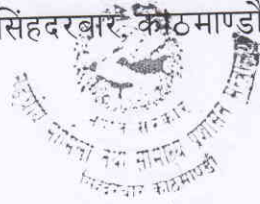 सिंहदरबार, काठमाण्डौ
नेपाल सरकार
मामिला तथा सामान्य प्रशासन
सिंहदरबार काठमाण्डौ